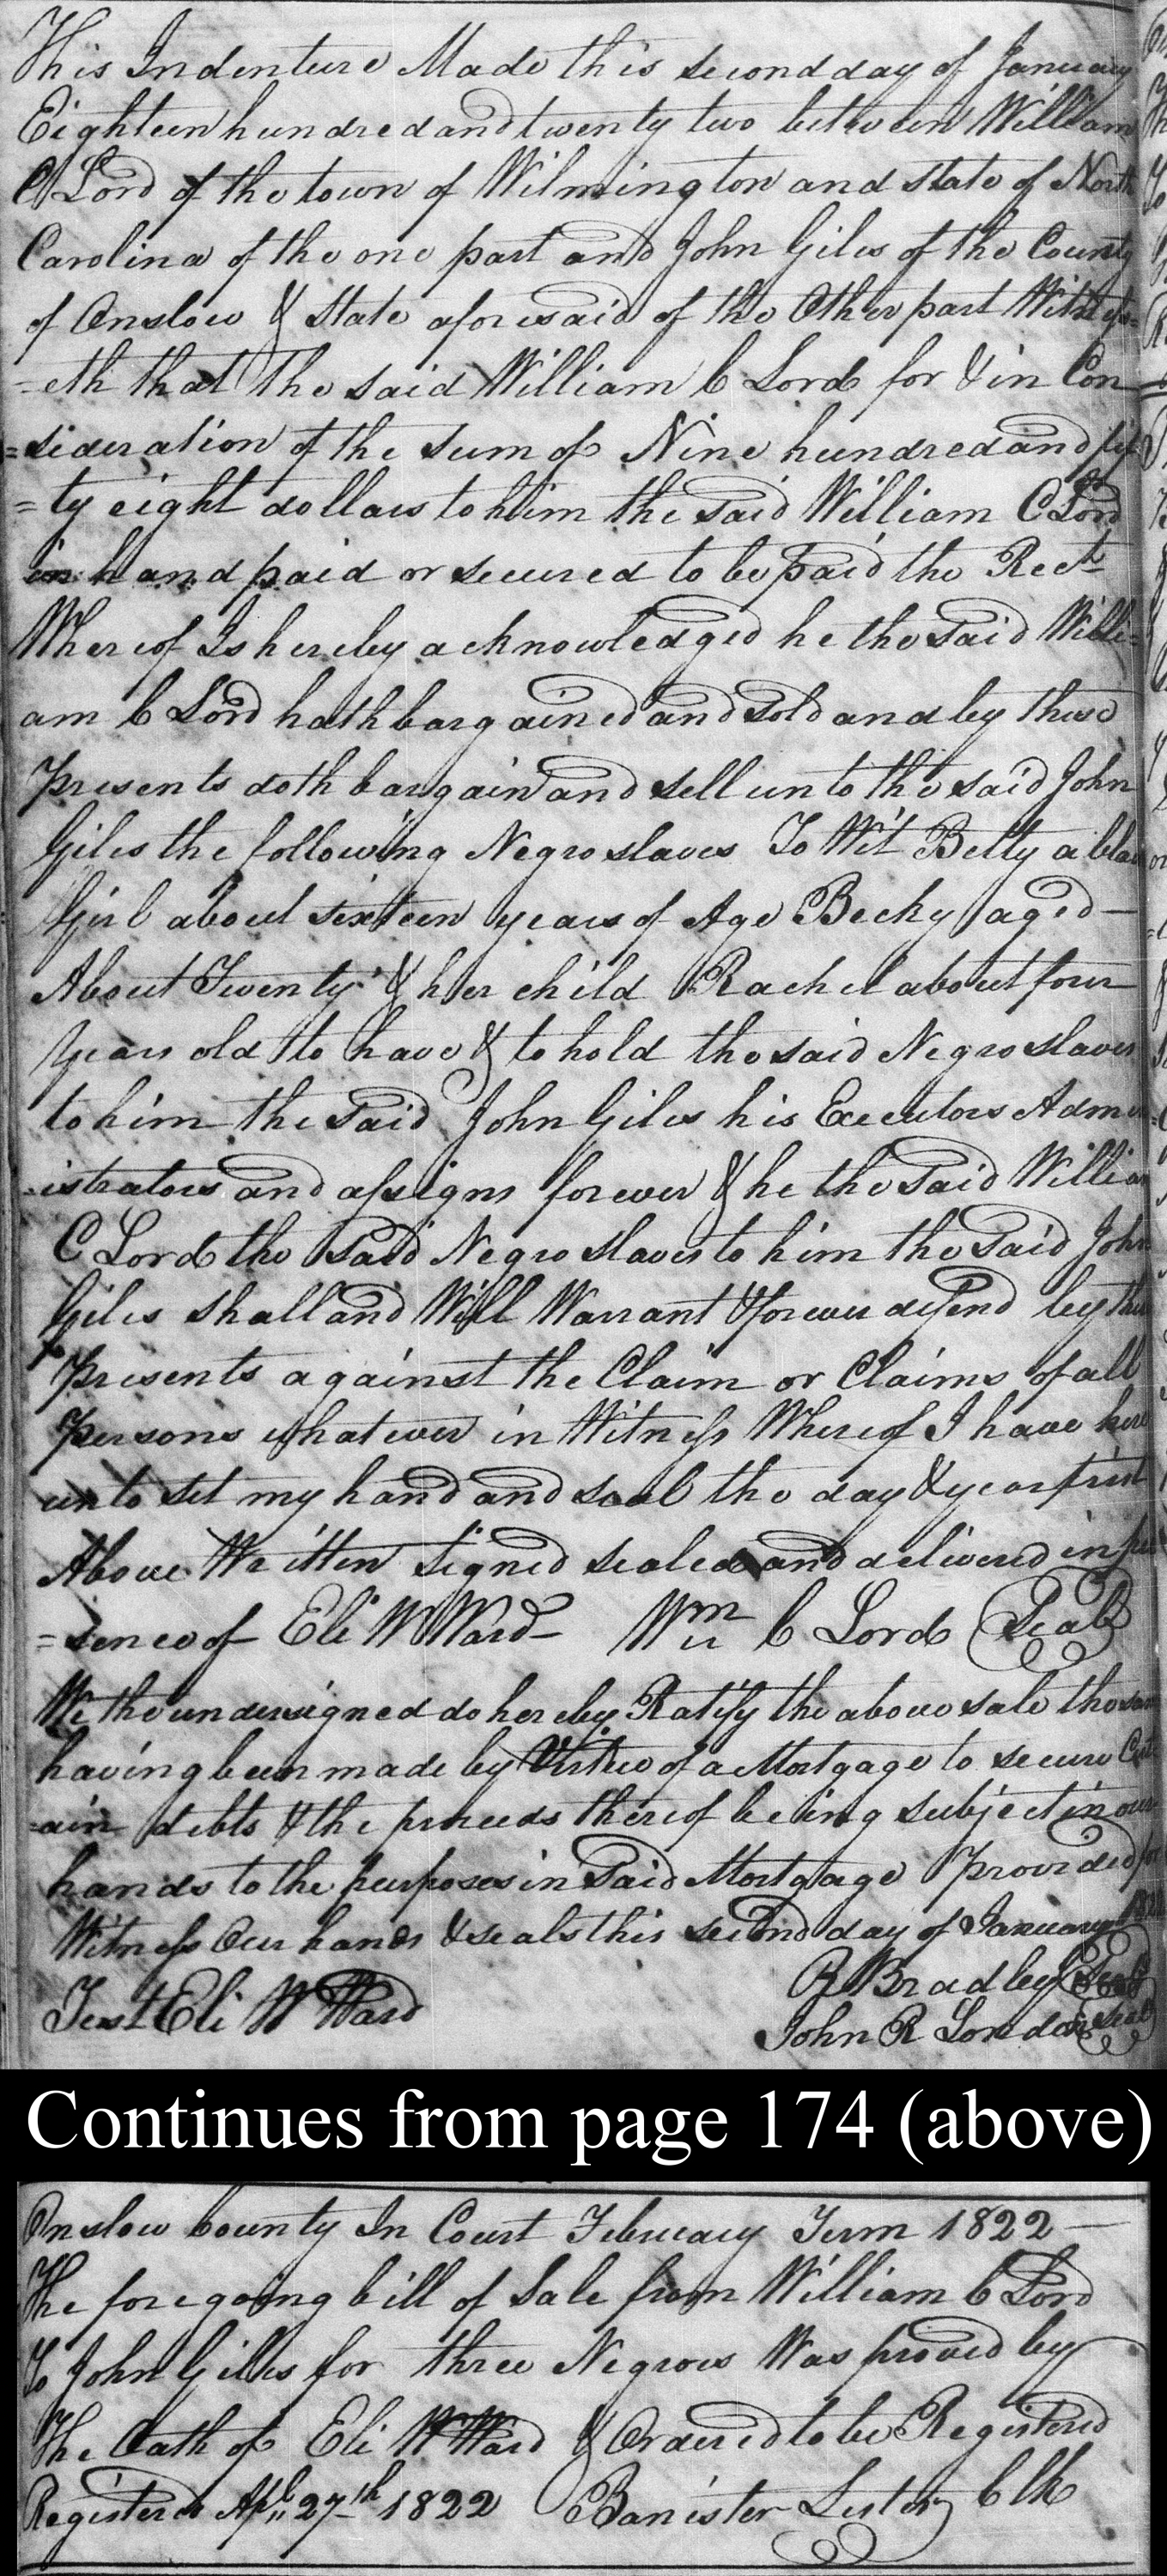 This Indenture Made this second day of January
Eighteen hundred and twenty two between William
C Lord of the town of Wilmington and state of North
Carolina of the one part and John Giles of the County
of Onslow & State aforesaid of the Other part Witness=
=eth that the said William C Lord for & in Con
=sideration of the sum of Nine hundred and fif
=ty eight dollars to him the said William C Lord
in hand paid or secured to be paid the Rect
Whereof Is hereby acknowledged he the said Willi=
am C Lord hath bargained and sold and by these
Presents doth bargain and sell unto the said John
Giles the following Negro slaves To Wit Betty a
Girl about sixteen years of Age Becky aged —
About Twenty & her child Rachel about four
years old to have & to hold the said Negro slaves
to him the said John Giles his Executors Admin
=istrators and assigns forever & he the said William
C Lord the said Negro slaves to him the said John
Giles shall and Will Warrant & forever defend by these
Presents against the Claim or Claims of all
Persons whatever in Witness Whereof I have here
unto set my hand and seal the day & year first
Above Written signed sealed and delivered in pre
=sence of Eli W Ward — Wm C Lord (Seal)
We the undersigned do hereby Ratify the above sale the same
having been made by Virtue of a Mortgage to secure Cert
=ain debts & the proceeds thereof being subject in our
hands to the purposes in said Mortgage Provided for
Witness Our hands & seals this second day of January
R Bradley (Seal)
Test Eli W Ward
John R London (Seal)
Continues from page 174 (above)
Onslow County In Court February Term 1822 —
The foregoing bill of Sale from William C Lord
To John Gilles for three Negroes Was proved by
The Oath of Eli W Ward & Ordered to be Registered
Registered Apl 27th 1822 Banister Lester Clk